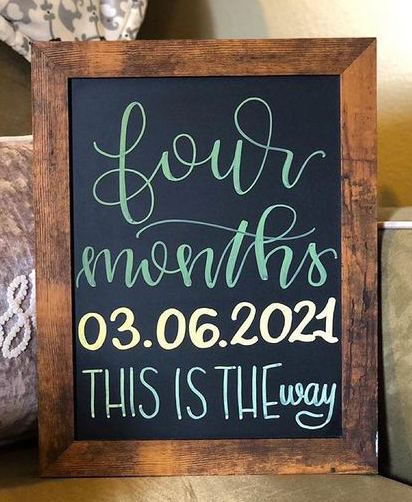 four
months
03.06.2021
THIS IS THE way